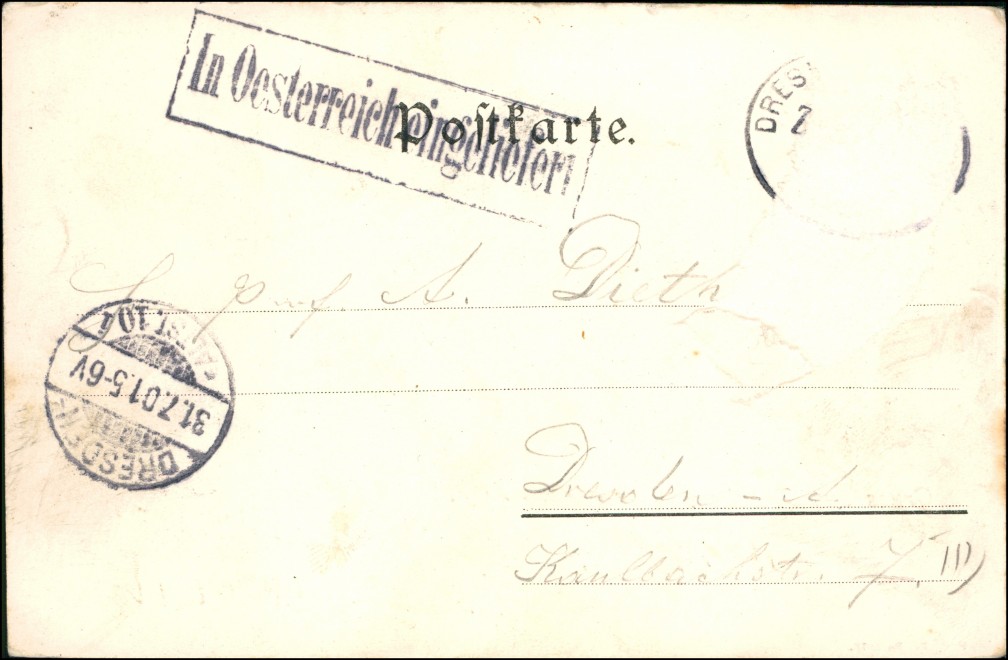 In Oesterreich eingeliefert
Postkarte.
DRES
7
S. Prof. A. Dieth
DRESDEN
31.7.01.5-6V
10
Dresden - A.
Kaulbachstr. 7, III)